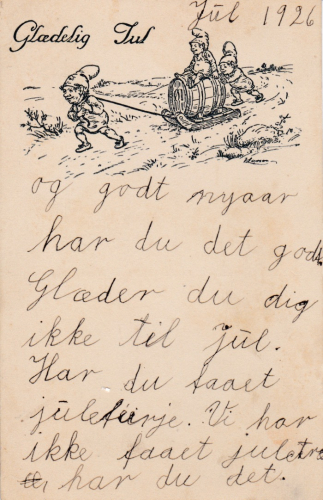 Jul 1926
Glædelig Jul
og godt nyaar
har du det godt
Glæder du dig
ikke til Jul.
Har du faaet
juleferje. Vi har
ikke faaet juletræ
har du det.